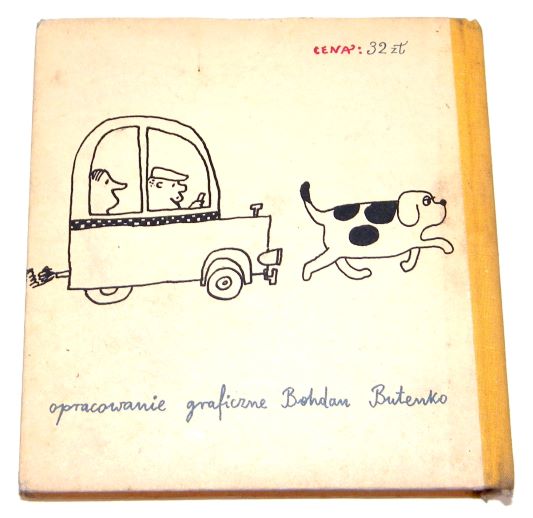 CENA: 32 zł
opracowanie graficzne Bohdan Butenko